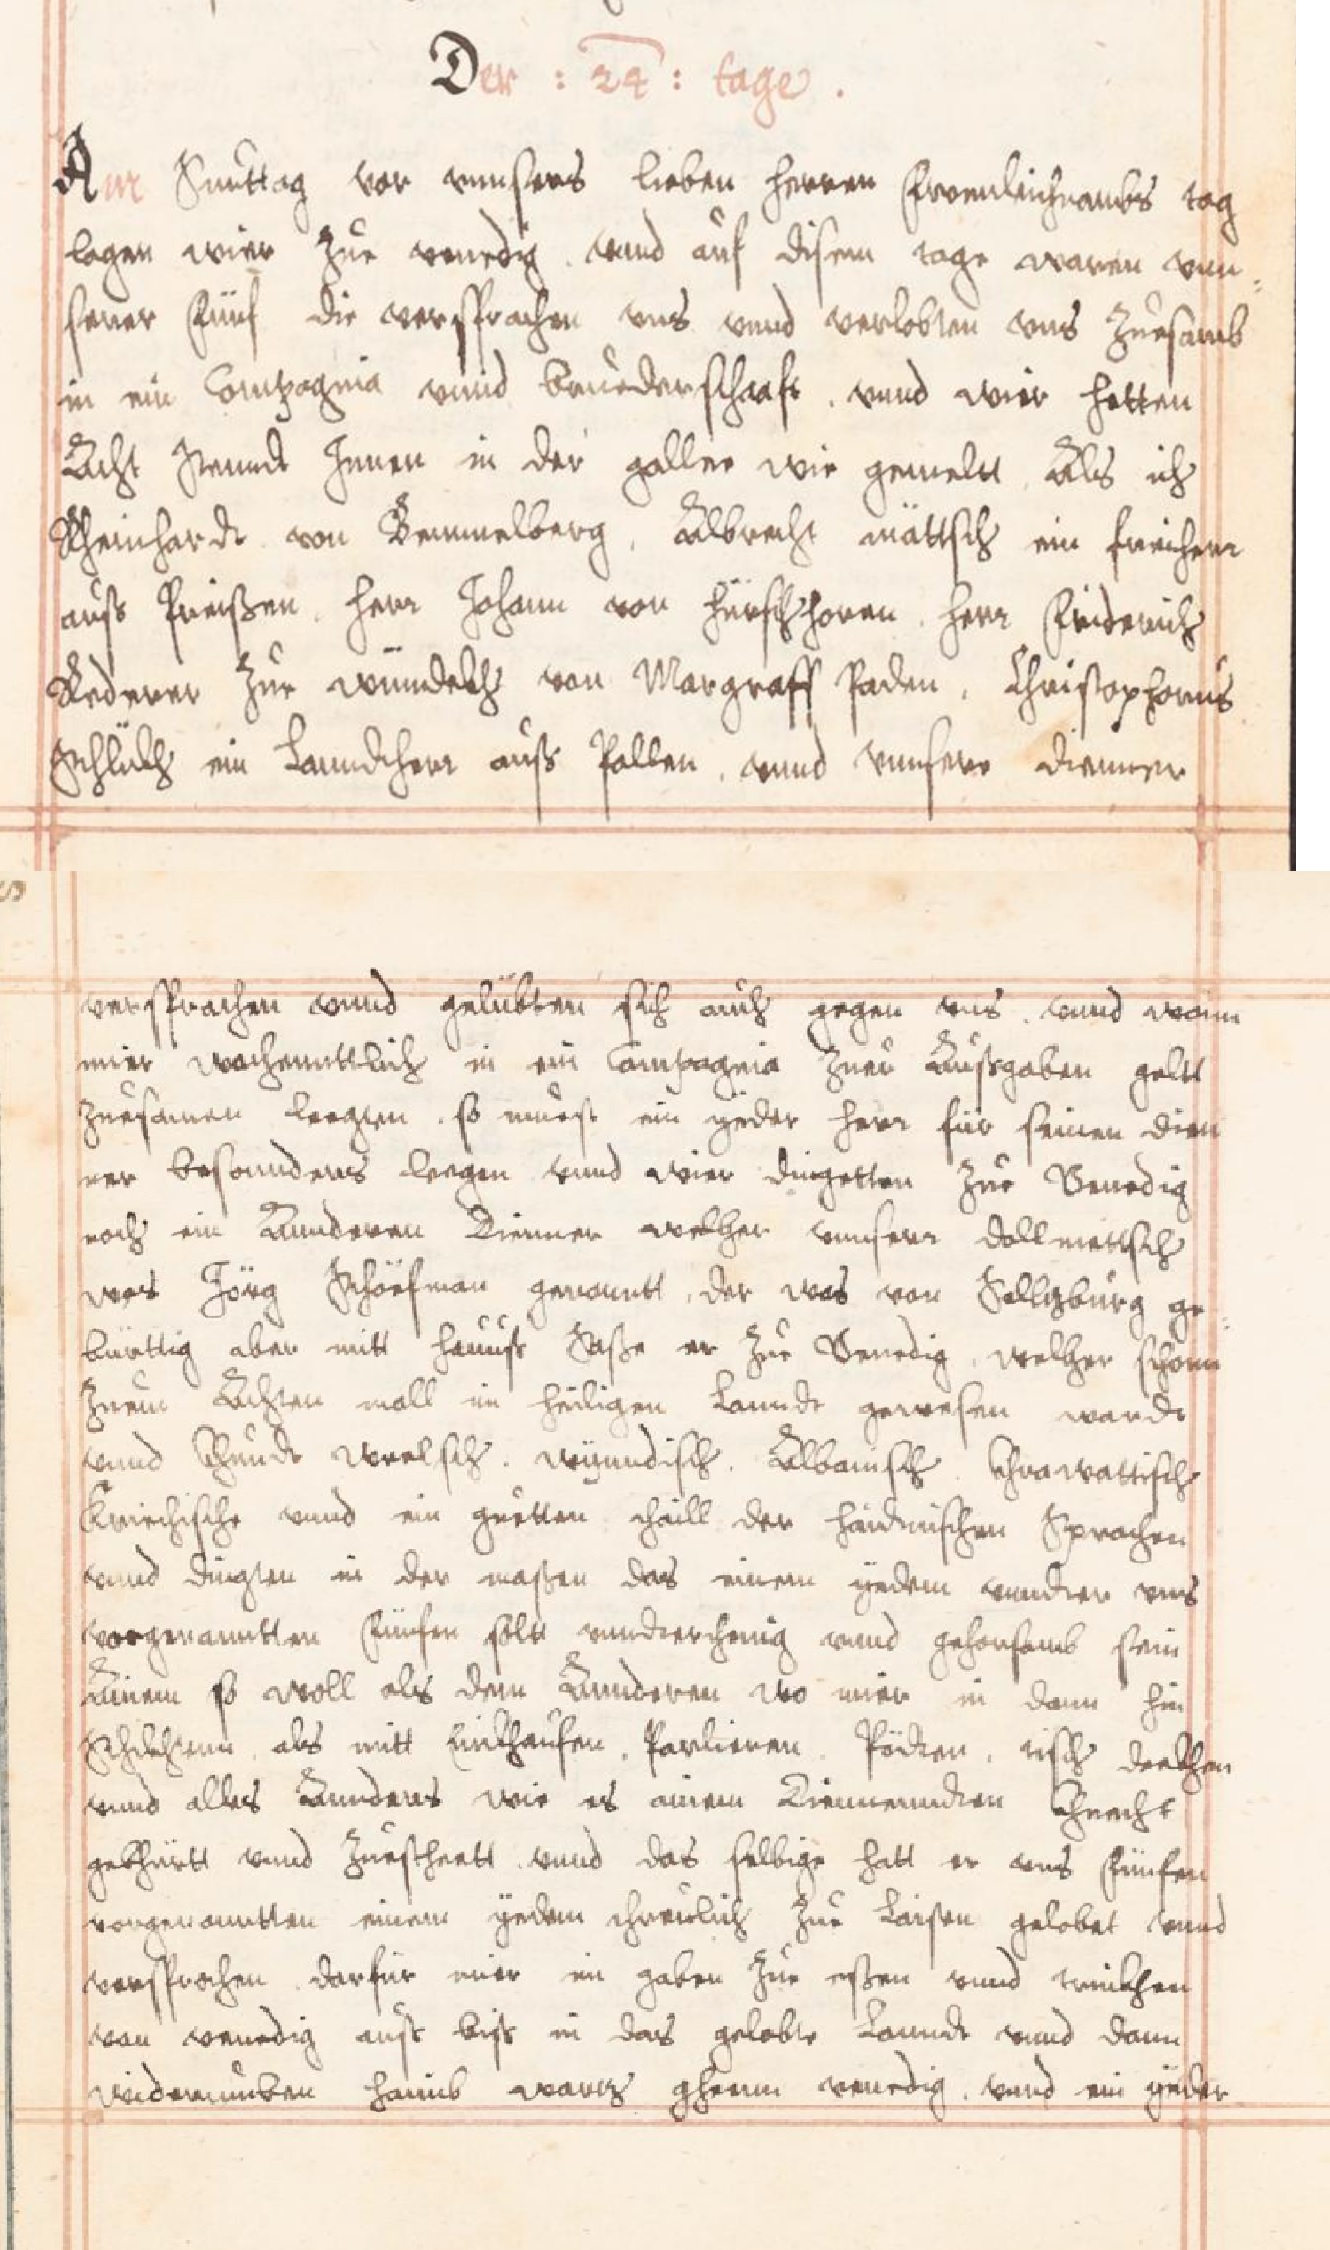 Der : 24 : tage .
Am Sunttag vor vnnsers lieben herren Fronleichnambs tag
lagen wier Zue venedig . vnnd auf disem tage waren vnn=
serer Fünf die versprachen vns vnnd verlobten vns Zuesamb
in ein Compagnia vnnd bruederschafft . vnnd wier hetten
Acht Innen in der gallee wie gemelt Als ich
Rheinhardt von Bemmelberg , Albrecht ein freiherr
auss Preißen . herr Johann von hürschhoren . herr Friderich
Rederer Zue von Margraff Paden , Christophorus
Schlickh ein Lanndtherr auss Pollen , vnnd vnnsere dienner
versprachen vnnd gelübten sich auch gegen vns . vnnd wann
mier wochenttlich in ein Compagnia Zuer Aussgaben geltt
Zuesamen leegten . so muest ein yeder herr für seinen dien
ner besonnders leegen vnnd wier dingetten Zue Venedig
noch ein Annderen Dienner welher vnnserr dollmettsch
was Jörg Schöefman genanntt , der was von Salltzburg ge=
bürttig aber mitt hauuss Saße er Zue Venedig , welher schonn
Zuem Achten mall im heiligen Lanndt gewesen wardt
vnnd khundt Weelsch . wynndisch . Albanisch Chrawattisch
Kriechische vnnd ein guetten thaill der haidnischen Sprachen
vnnd dingten in der maßen das einem yedem vnndter vns
vorgenanntten Fünfen solt vnndterthenig vnnd gehorsamb sein
Ainem so woll als dem Annderen wo mier in dann hin
Schickhten . als mitt Einkhaufen . Parlieren . , tisch deckhen
vnnd alles Annders wie es ainem Diennenndten Chnecht
gebhürtt vnnd Zuesteett vnnd das selbige hatt er vns Fünfen
vorgenanntten einem yedem threulich Zue Laisten gelobet vnnd
versprochen . darfür mier im gaben Zue eßen vnnd trinkhen
von venedig auss biss in das gelobte Lanndt vnnd dann
widerumben haimb warts ghenn venedig . vnnd ein yeder